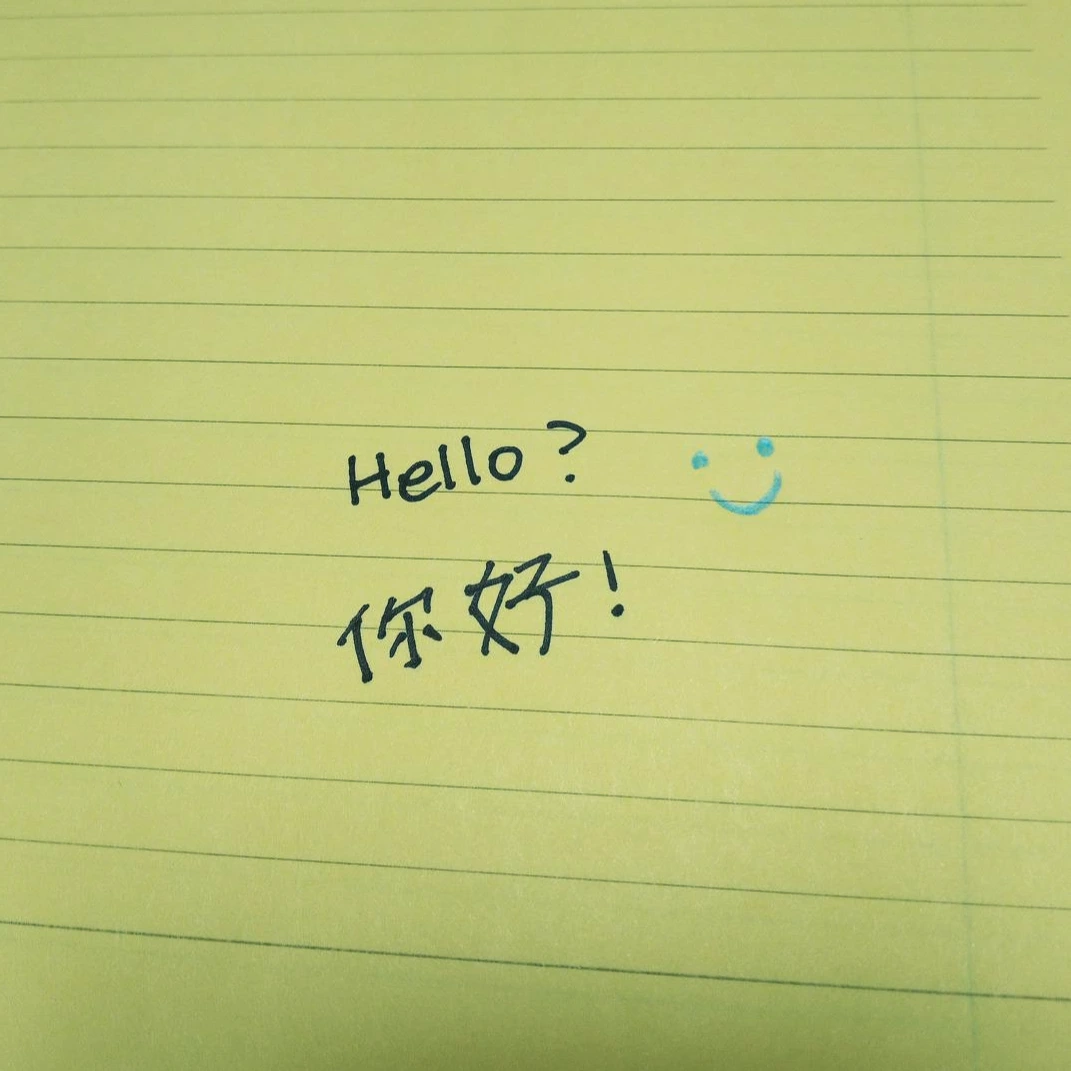 Hello?
你好!